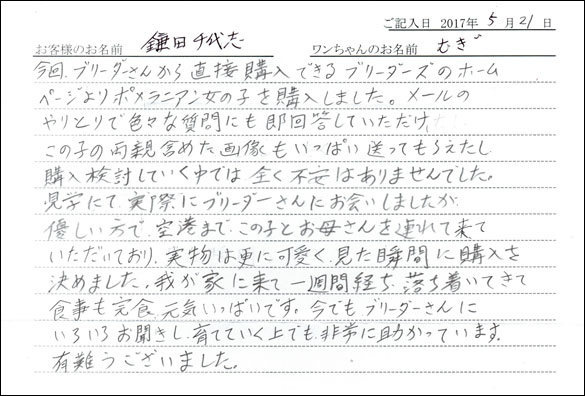 ご記入日 2017年 5月 21日
お客様のお名前 鎌田千代志 ワンちゃんのお名前 むぎ
今回、ブリーダーさんから直接購入できるブリーダーズのホーム
ページよりポメラニアン女の子を購入しました。メールの
やりとりで色々な質問にも即回答していただけ
この子の両親含めた画像もいっぱい送ってもらえたし
購入検討していく中では全く不安はありませんでした。
見学にて、実際にブリーダーさんにお会いしましたが
優しい方で、空港まで、この子とお母さんを連れて来て
いただいており、実物は更に可愛く、見た瞬間に購入を
決めました。我が家に来て一週間経ち、落ち着いてきて
食事も完食、元気いっぱいです。今でもブリーダーさんに
いろいろお聞きし、育てていく上でも、非常に助かっています。
有難うございました。